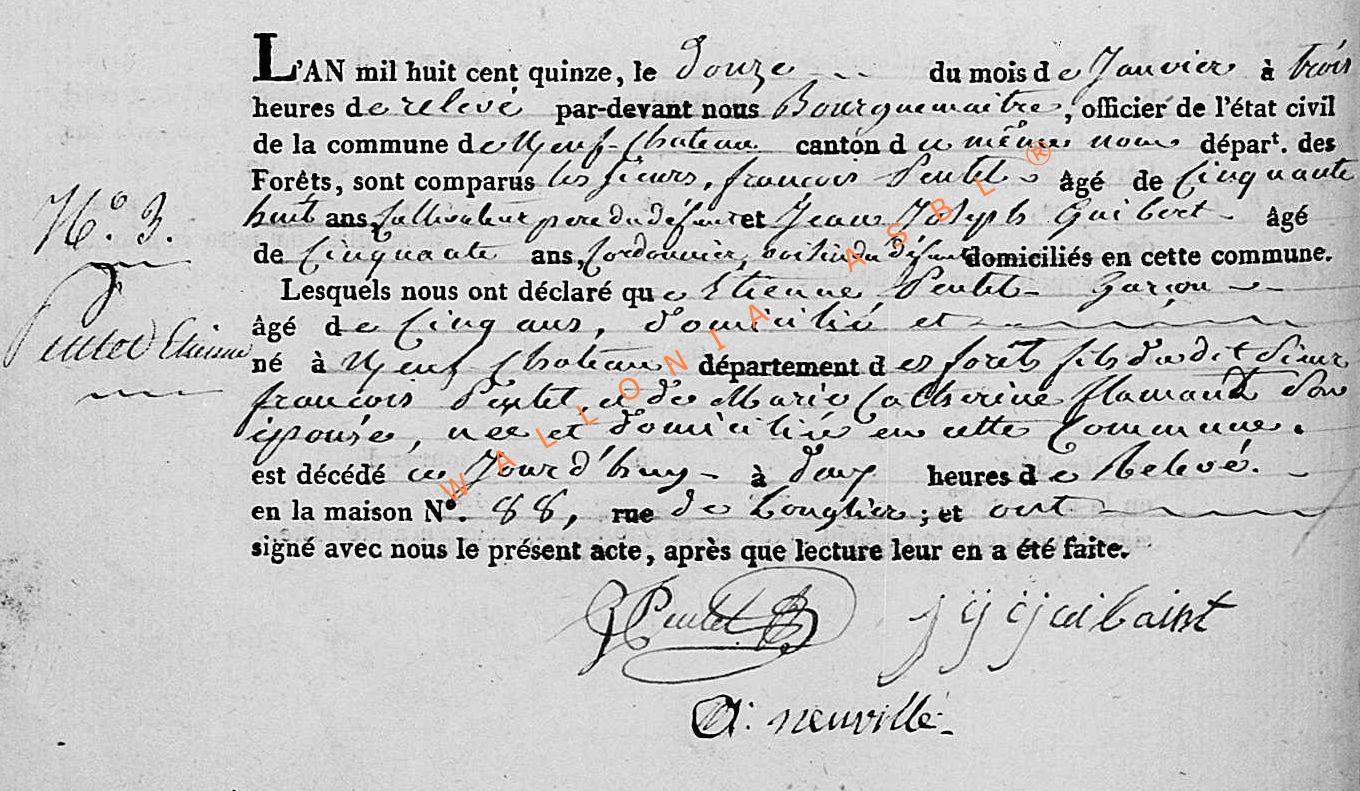 L'AN mil huit cent quinze, le Douze du mois de Janvier à trois
heures de relevé par-devant nous Bourguemaitre, officier de l'état civil
de la commune de Neuf-Chateau canton d u même nom départ. des
Forêts, sont comparus les sieurs, francois Pentet âgé de Cinquante
N.º 3.
huit ans, Cultivateur pere du défunt et Jean Joseph Guibert âgé
de Cinquante ans, Cordonnier, voisin du défunt domiciliés en cette commune.
Lesquels nous ont déclaré que Etienne Pentet Garçon
Pentet Etienne
âgé de Cinq ans, domicilié et
né à Neuf Chateau département des forêts fils du dit Sieur
francois Pentet et de Marie Catherine flamand Son
épouse, nee et domiciliée en cette Commune.
est décédé ce Jourd'huy à deux heures de Relevé.
en la maison Nº. 88, rue de Longlier ; et ont
signé avec nous le présent acte, après que lecture leur en a été faite.
Pentet
A: neuville
WALLONIA ASBL ®